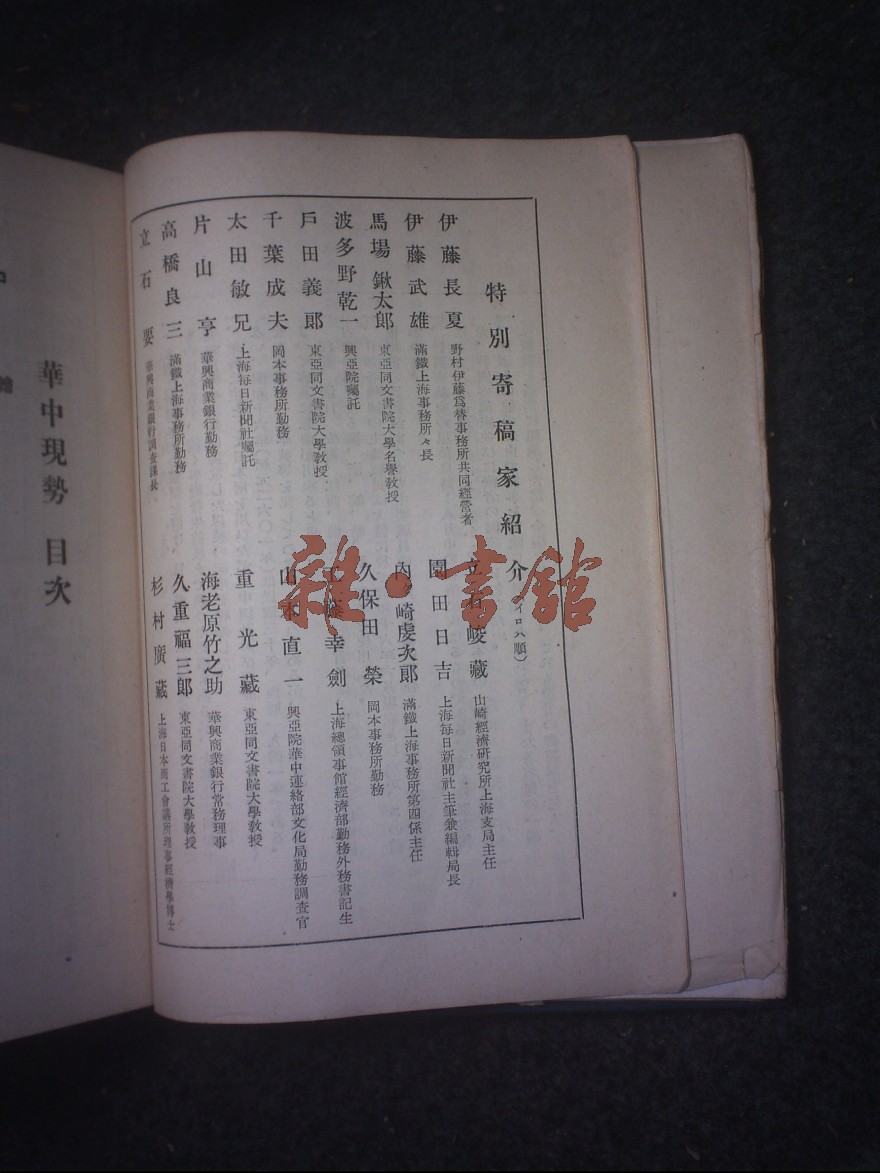 特別寄稿家紹介(イロハ順)
伊藤長夏 野村伊藤爲替事務所共同經營者
伊藤武雄 滿鐵上海事務所々長
馬場鍬太郎 東亞同文書院大學名譽教授
波多野乾一 興亞院囑託
戸田義郎 東亞同文書院大學教授
千葉成夫 岡本事務所勤務
太田敏兄 上海毎日新聞社囑託
片山亨 華興商業銀行勤務
高橋良三 滿鐵上海事務所勤務
立石要 華興商業銀行調査課長
峻藏 山崎經濟研究所上海支局主任
園田日吉 上海毎日新聞社主筆兼編輯局長
内崎虔次郎 滿鐵上海事務所第四係主任
久保田榮 岡本事務所勤務
幸劍 上海總領事館經濟部勤務外務書記生
山本直一 興亞院華中連絡部文化局勤務調査官
重光藏 東亞同文書院大學教授
海老原竹之助 華興商業銀行常務理事
久重福三郎 東亞同文書院大學教授
杉村廣藏 上海日本商工會議所理事經濟學博士
華中現勢 目次
雜·書館